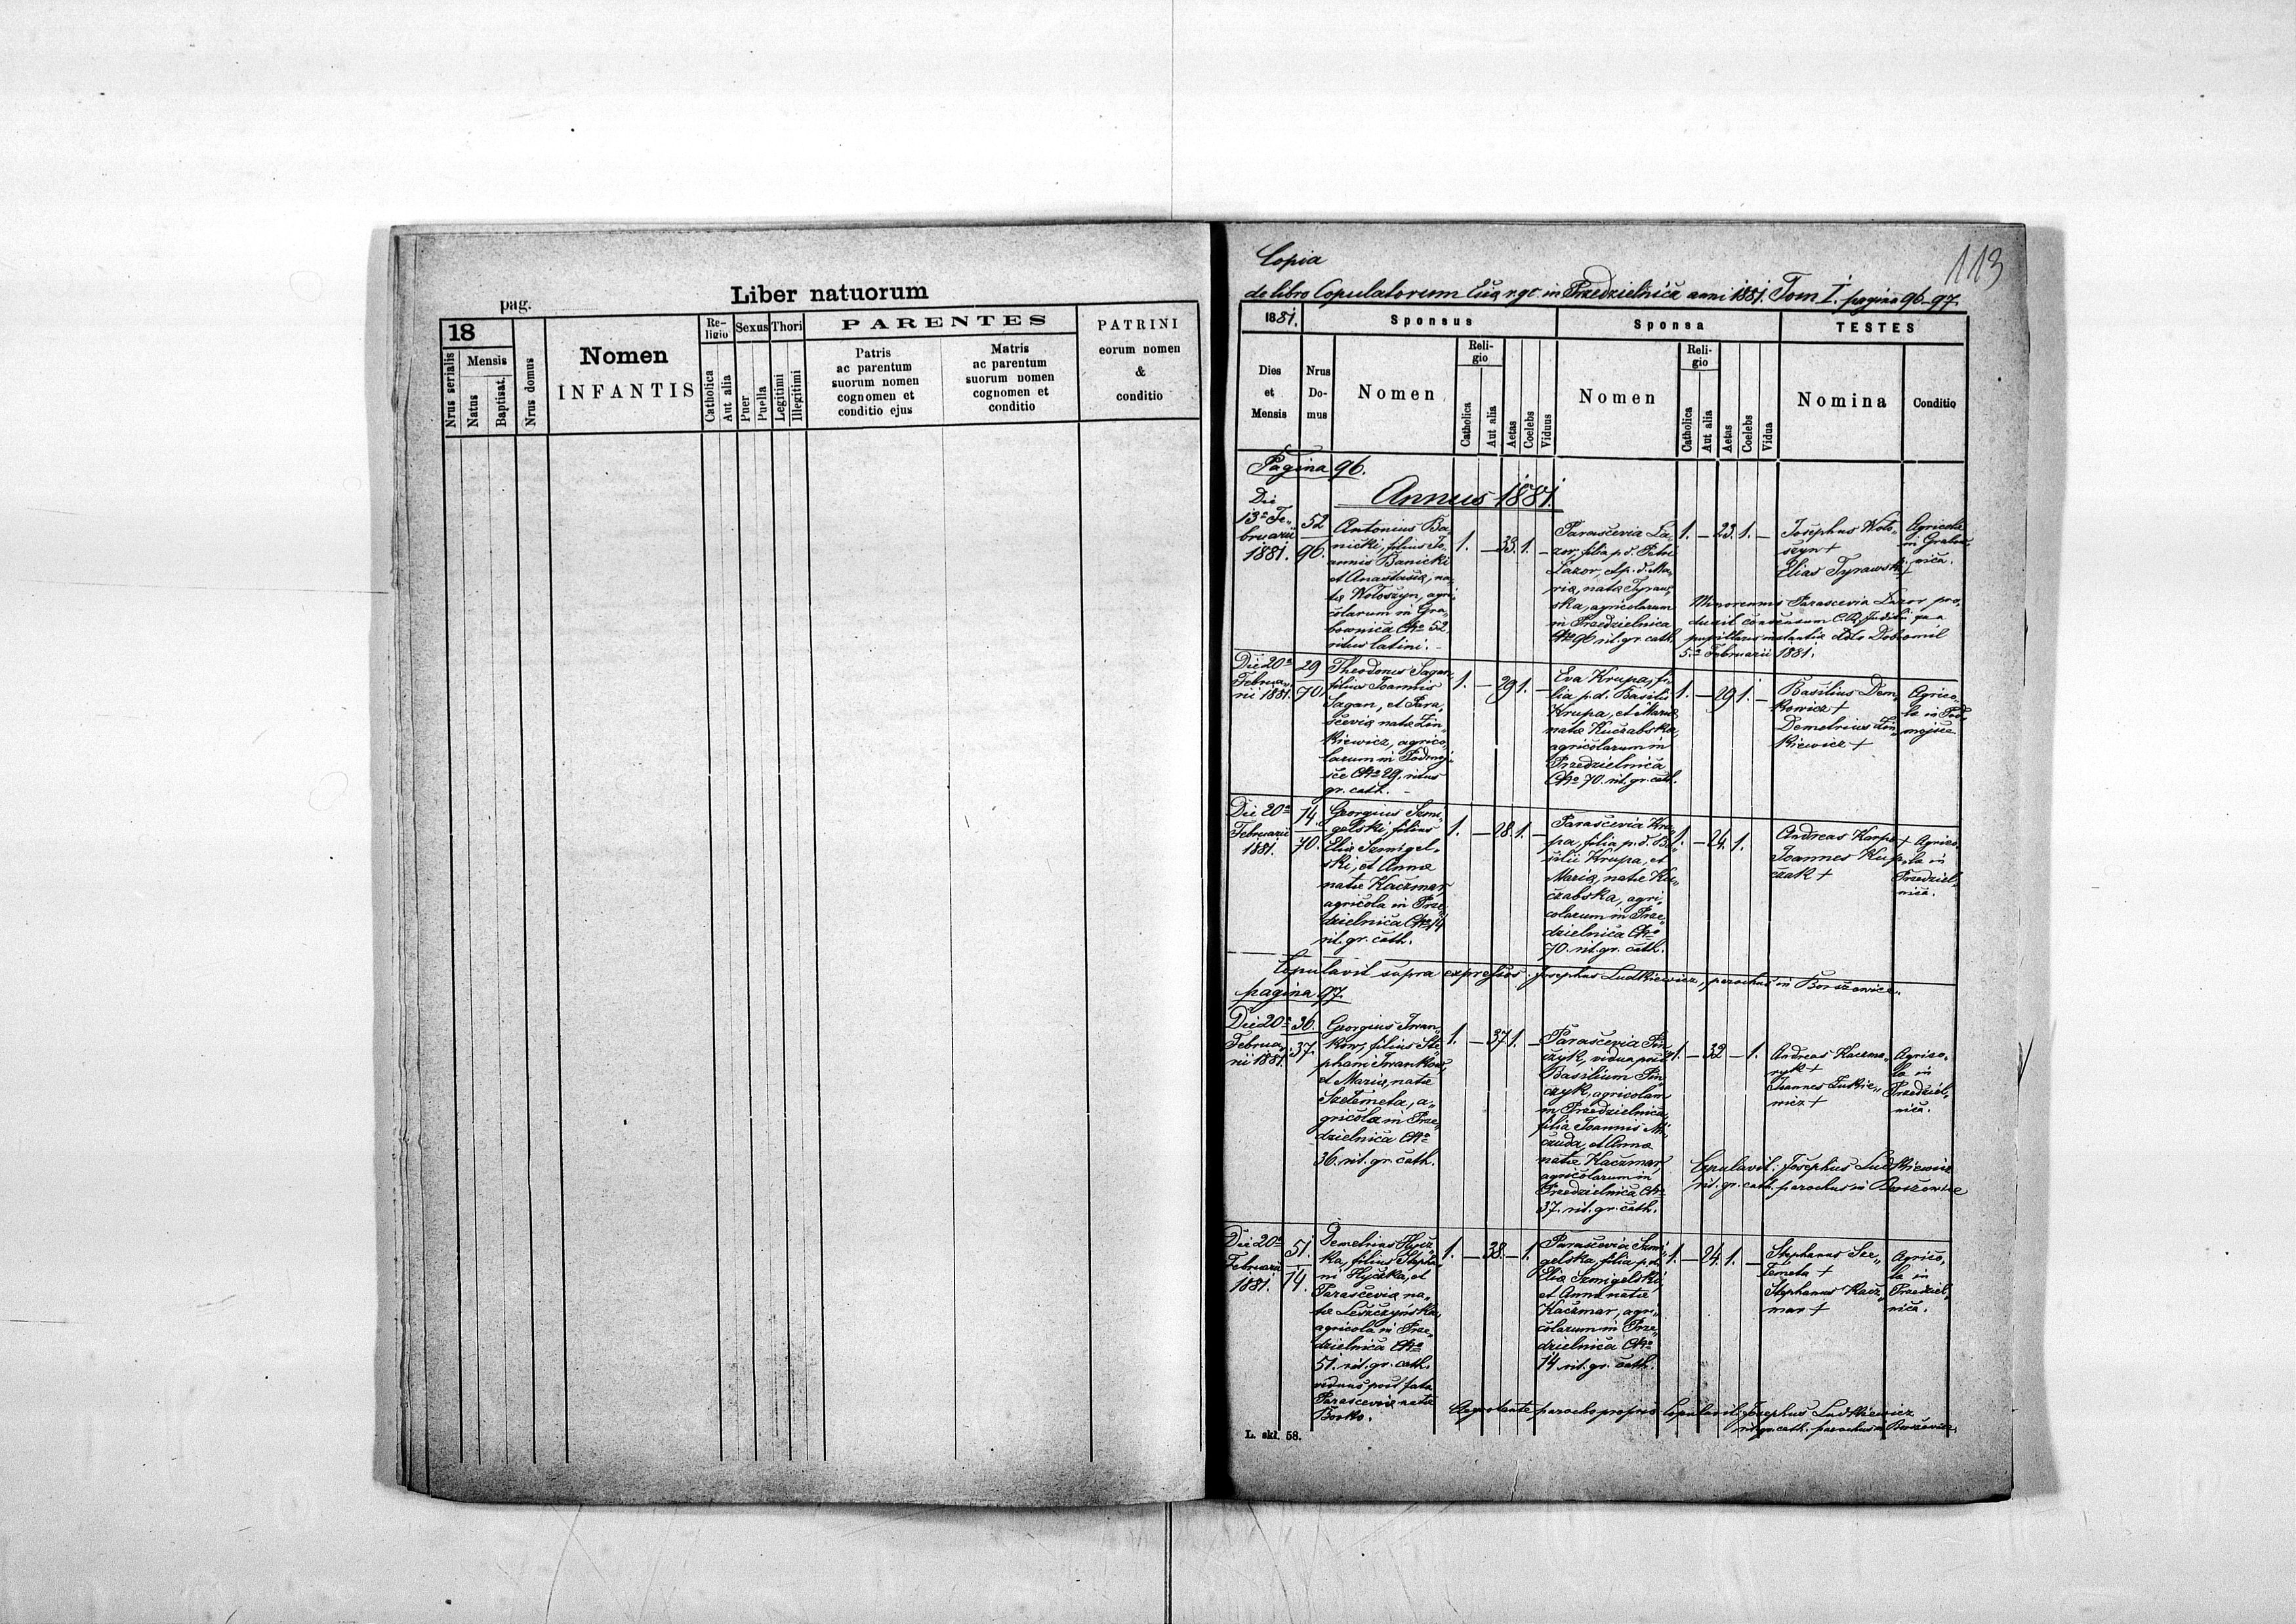 pag.
Liber natuorum
18
Nrus serialis
Mensis
Natus
Baptisat.
Nrus domus
Nomen
INFANTIS
Re-
ligio
Catholica
Aut alia
Sexus
Puer
Puella
Thori
Legitimi
Illegitimi
PARENTES
Patris
ac parentum
suorum nomen
cognomen et
conditio ejus
Matris
ac parentum
suorum nomen
cognomen et
conditio
PATRINI
eorum nomen
&
conditio
Copia
113
de libro Copulatorum in Przedzielnica anni 1881. Tom I. pagina 96-97.
1881.
Sponsus
Sponsa
TESTES
Dies
et
Mensis
Nrus
Do-
mus
Nomen
Reli-
gio
Catholica
Aut alia
Aetas
Coelebs
Viduus
Nomen
Reli-
gio
Catholica
Aut alia
Aetas
Coelebs
Vidua
Nomina
Conditio
Pagina 96.
Annus 1881.
Die
13a Fe-
bruarii
1881.
52
96.
Antonius Ba-
nicki, filius Jo-
annis Banicki
et Anastasia, na-
ta Wołoszyn, agri-
colarum in Gra-
bownica Nro 52
ritus latini. -
1. — 33. 1. —
Parascevia La-
zor, filia p. d. Petri
Lazor, et p. d. Ma-
ria, nata Tyraw-
ska, agricolarum
in Przedzielnica
Nro 96 rit. gr. cath.
1. — 23. 1. —
Josephus Woło-
szyn +
Elias Tyrawski +
Agricola
in Grabo-
wnica.
Minorennis Parascevia Lazor pro-
duxit consensum C. R. Judicii qua
pupillaris instantia ddto Dobromil
5a Februarii 1881.
Die 20a
Februa-
rii 1881.
29
70.
Theodorus Sagan
filius Joannis
Sagan, et Para-
scevia nata Zin-
kiewicz, agrico-
larum in Podmoj-
sce Nro 29. ritus
gr. cath. -
1. — 29 1. —
Eva Krupa, fi-
lia p. d. Basilii
Krupa, et Maria
nata Kuczabska,
agricolarum in
Przedzielnica
Nro 70. rit. gr. cath.
1. — 29 1. —
Basilius Dem-
kowicz +
Demetrius Zin-
kiewicz +
Agrico-
la in Pod-
mojsce
Die 20a
Februarii
1881.
14.
70.
Georgius Szmi-
gelski, filius
Elia Szmigel-
ski, et Anna
nata Kaczmar
agricola in Prze-
dzielnica Nro 14
rit. gr. cath.
1. — 28. 1. —
Parascevia Kru-
pa, filia p. d. Ba-
silii Krupa, et
Maria, nata Ku-
czabska, agri-
colarum in Prze-
dzielnica Nro
70. rit. gr. cath.
1. — 24. 1.
Andreas Karpa +
Joannes Kup-
czak +
Agrico-
la in
Przedziel-
nica.
Copulavit supra expressos: Josephus Ludkiewicz, parochus in Borszowice.
pagina 97.
Die 20a
Februa-
rii 1881.
36.
37.
Georgius Iwan-
kow, filius Ste-
phani Iwankow,
et Maria, nata
Szełemeta, a-
gricola in Prze-
dzielnica Nro
36. rit. gr. cath.
1. — 37 1. —
Parascevia Pin-
czyk, vidua post
Basilium Pin-
czyk, agricolam
in Przedzielnica,
filia Joannis
et Anna
nata Kaczmar,
agricolarum in
Przedzielnica Nro
37. rit. gr. cath.
1. — 32 — 1.
Andreas Kaczma-
ryk +
Joannes
wicz +
Agrico-
la in
Przedziel-
nica.
Copulavit: Josephus Ludkiewicz
rit. gr. cath. parochus in Borszowice
Die 20a
Februarii
1881.
51.
14.
Demetrius Hycz-
ka, filius Stepha-
ni Hyczka, et
Parascevia na-
ta Leszczyńska,
agricola in Prze-
dzielnica Nro
51. rit. gr. cath.
viduus post fata
Parascevia nata
Borko.
1. — 38. — 1.
Parascevia Szmi-
gelska, filia p. d.
Elia Szmigelski,
et Anna nata
Kaczmar, agri-
colarum in Prze-
dzielnica Nro
14 rit. gr. cath.
1. — 24. 1. —
Stephanus Sze-
łemeta +
Stephanus Kacz-
mar +
Agrico-
la in
Przedziel-
nica.
Aegrotante parocho proprio Copulavit: Josephus Ludkiewicz
rit. gr. cath. parochus in Borszowice.
L. skł. 58.